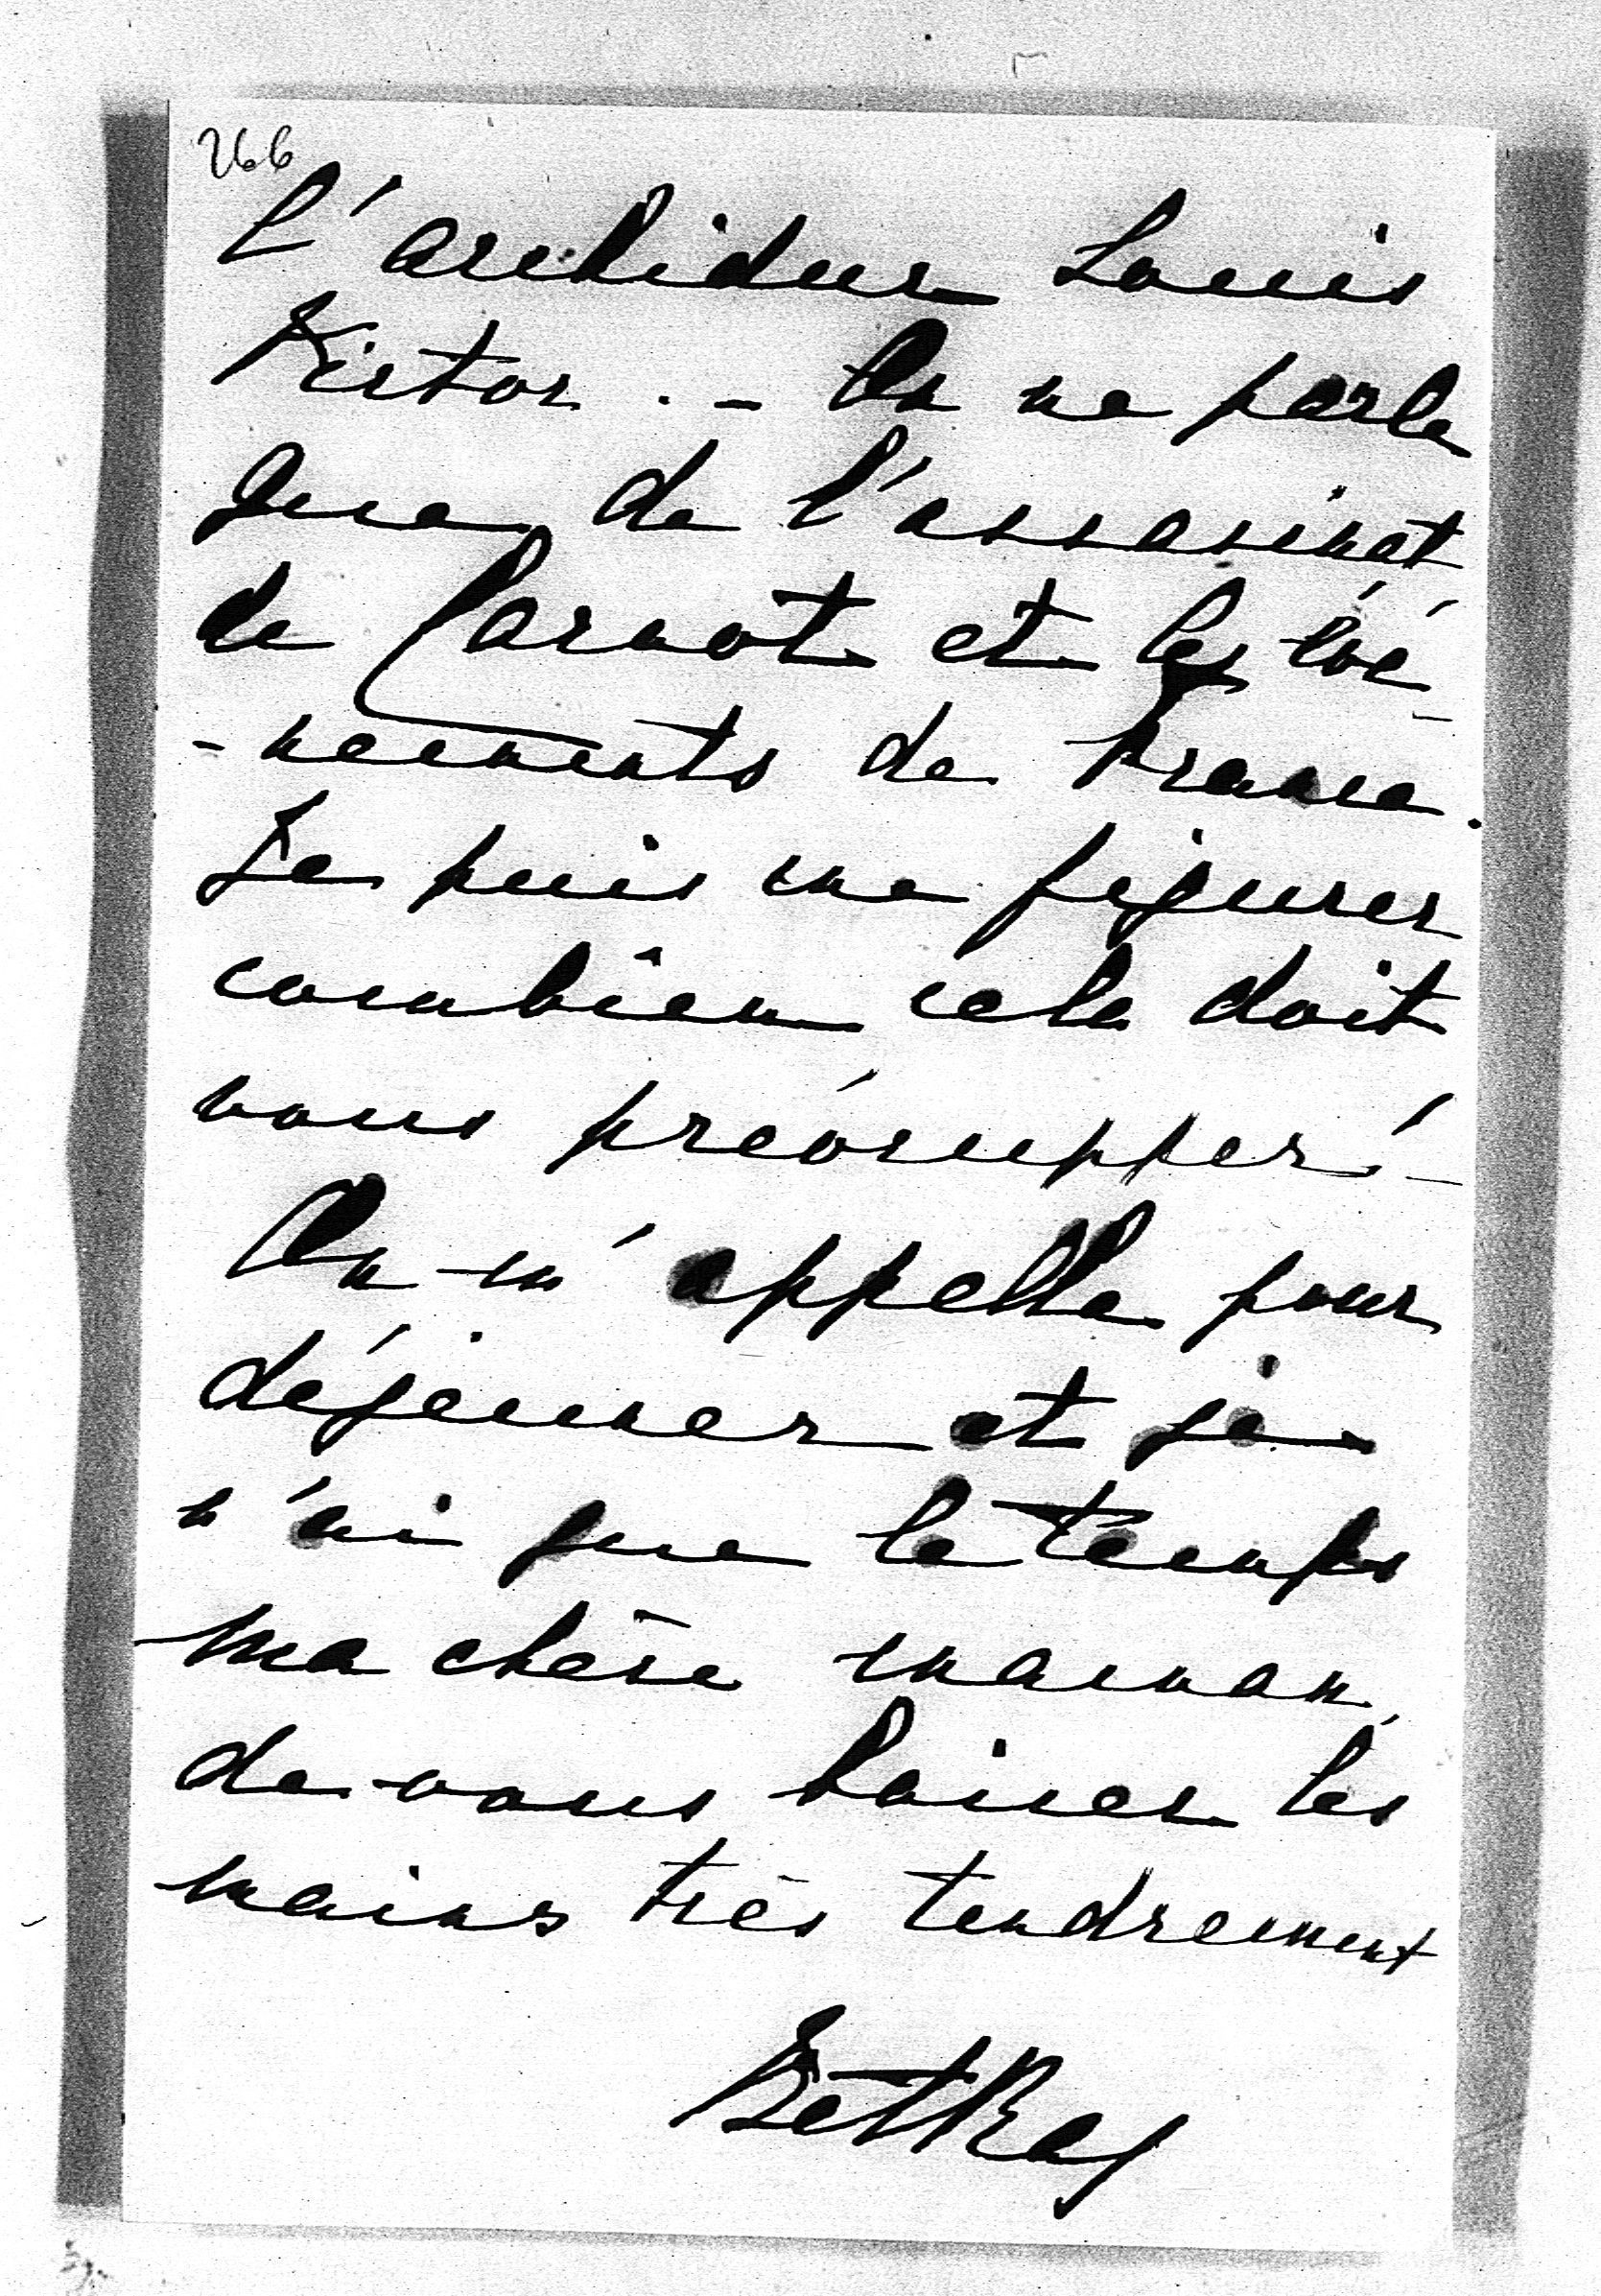 266
l'archiduc Louis
Victor. - On ne parle
que de l'assasinat
de Carnot et les évé
-nements de France.
Je puis me figurer
combien cela doit
vous préocupper! -
On m'appelle pour
déjeuner et je
n'ai que le temps
ma chère maman,
de vous baiser les
mains très tendrement